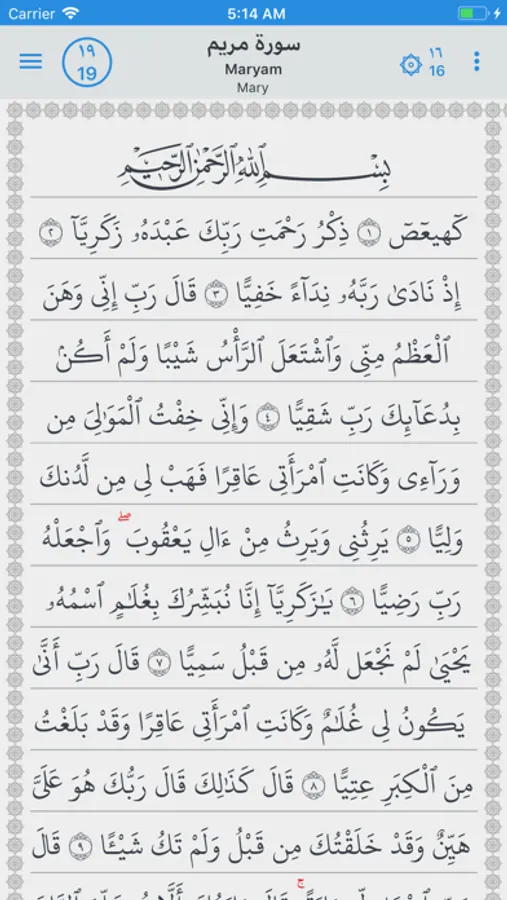 Carrier 5:14 AM
١٩ سورة مريم ١٦
19 Maryam 16
Mary
بِسْمِ ٱللَّهِ ٱلرَّحْمَٰنِ ٱلرَّحِيمِ
كٓهيعٓصٓ ١ ذِكْرُ رَحْمَتِ رَبِّكَ عَبْدَهُۥ زَكَرِيَّآ ٢
إِذْ نَادَىٰ رَبَّهُۥ نِدَآءً خَفِيًّا ٣ قَالَ رَبِّ إِنِّى وَهَنَ
ٱلْعَظْمُ مِنِّى وَٱشْتَعَلَ ٱلرَّأْسُ شَيْبًا وَلَمْ أَكُنۢ
بِدُعَآئِكَ رَبِّ شَقِيًّا ٤ وَإِنِّى خِفْتُ ٱلْمَوَٰلِىَ مِن
وَرَآءِى وَكَانَتِ ٱمْرَأَتِى عَاقِرًا فَهَبْ لِى مِن لَّدُنكَ
وَلِيًّا ٥ يَرِثُنِى وَيَرِثُ مِنْ ءَالِ يَعْقُوبَ ۖ وَٱجْعَلْهُ
رَبِّ رَضِيًّا ٦ يَٰزَكَرِيَّآ إِنَّا نُبَشِّرُكَ بِغُلَٰمٍ ٱسْمُهُۥ
يَحْيَىٰ لَمْ نَجْعَل لَّهُۥ مِن قَبْلُ سَمِيًّا ٧ قَالَ رَبِّ أَنَّىٰ
يَكُونُ لِى غُلَٰمٌ وَكَانَتِ ٱمْرَأَتِى عَاقِرًا وَقَدْ بَلَغْتُ
مِنَ ٱلْكِبَرِ عِتِيًّا ٨ قَالَ كَذَٰلِكَ قَالَ رَبُّكَ هُوَ عَلَىَّ
هَيِّنٌ وَقَدْ خَلَقْتُكَ مِن قَبْلُ وَلَمْ تَكُ شَيْـًٔا ٩ قَالَ